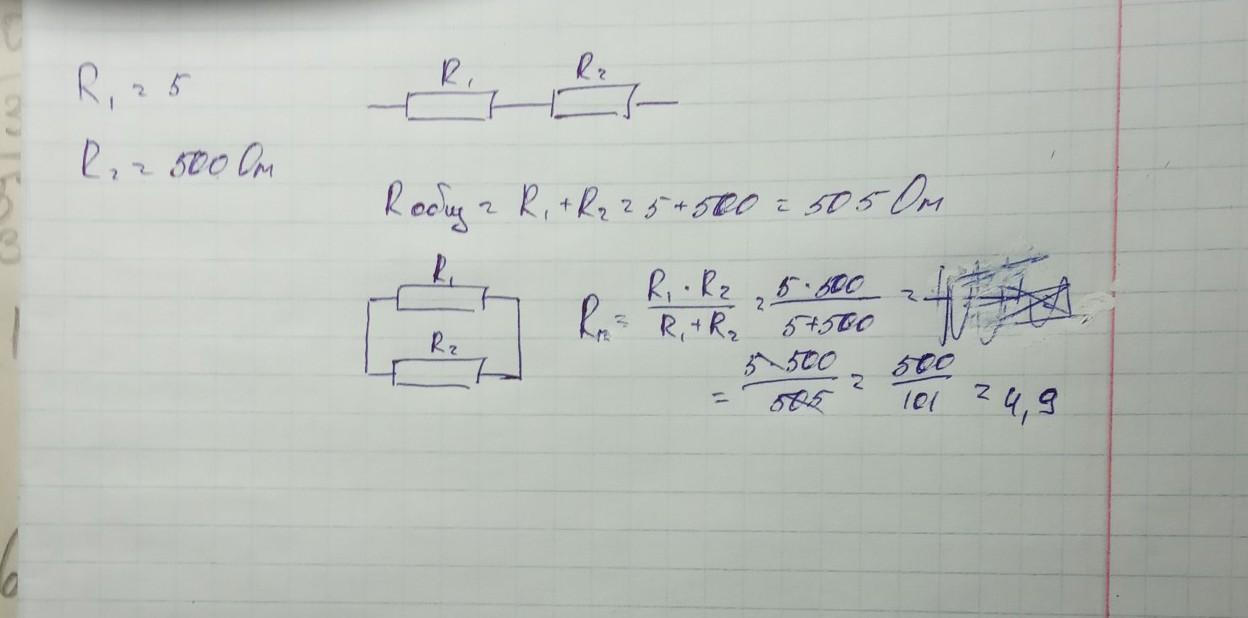 R₁ = 5
R₂ = 500 Ом
R₁ R₂
Rобщ = R₁ + R₂ = 5 + 500 = 505 Ом
R₁
R₂
Rп = R₁ · R₂ / R₁ + R₂ = 5 · 500 / 5 + 500 =
= 5 · 500 / 505 = 500 / 101 = 4,9